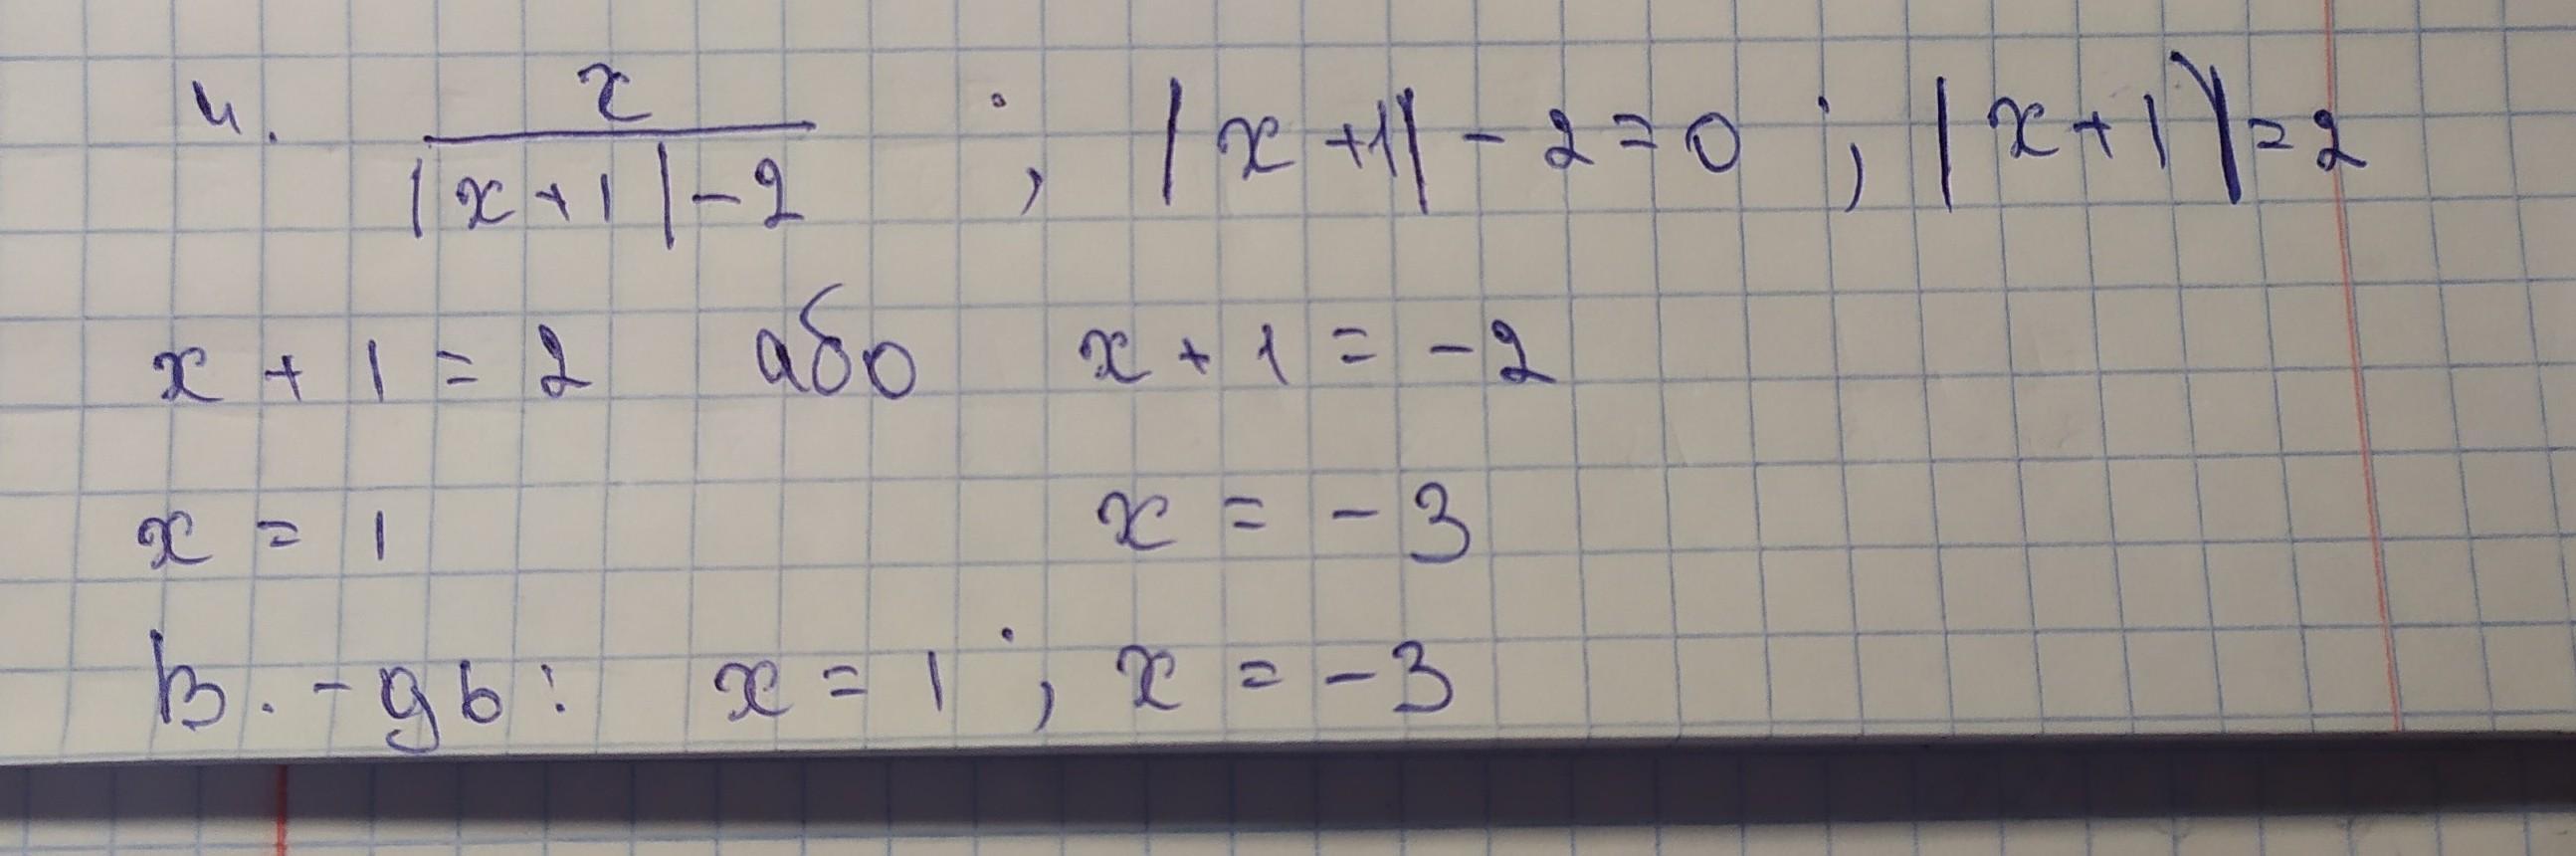 4. x / (|x+1|-2) ; |x+1|-2=0 ; |x+1|=2
x+1=2 або x+1=-2
x=1 x=-3
В.-дь: x=1 ; x=-3